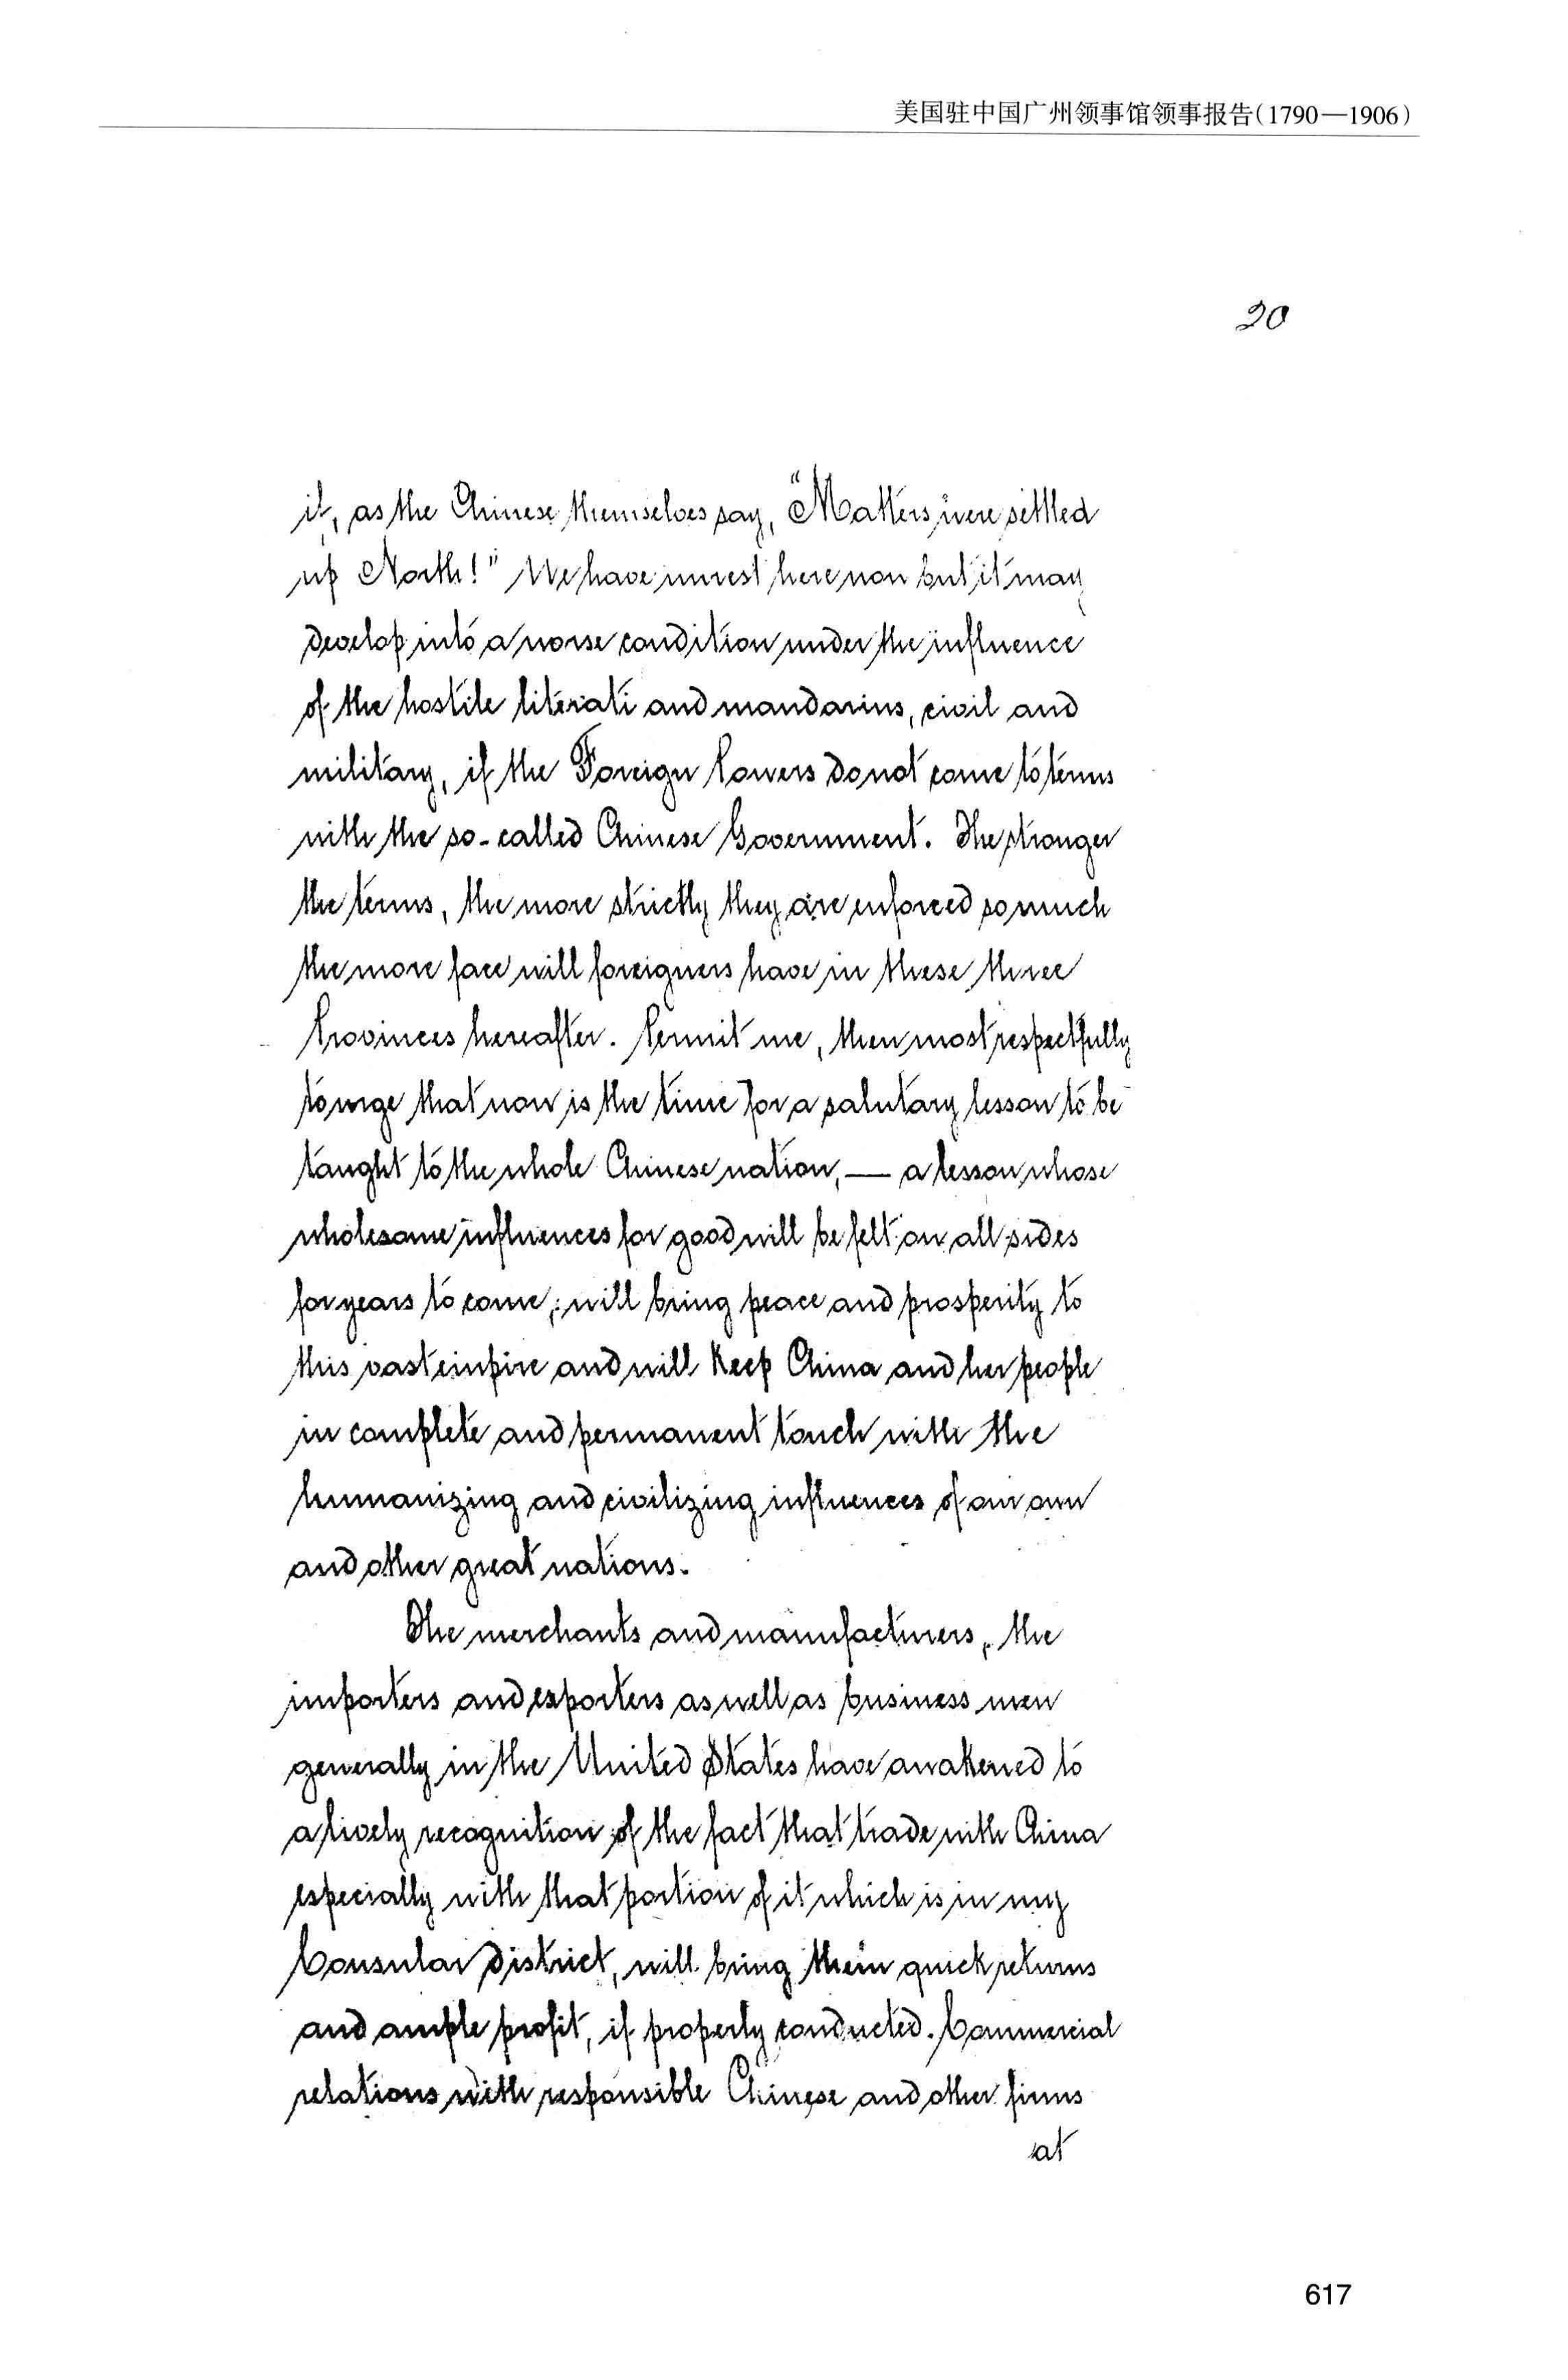 美国驻中国广州领事馆领事报告(1790—1906)
20
it, as the Chinese themselves say, "Matters were settled
up North!" We have unrest here now but it may
develop into a worse condition under the influence
of the hostile literati and mandarins, civil and
military, if the Foreign Powers do not come to terms
with the so-called Chinese Government. The stronger
the terms, the more strictly they are enforced so much
the more face will foreigners have in these three
Provinces hereafter. Permit me, then most respectfully
to urge that now is the time for a salutary lesson to be
taught to the whole Chinese nation, — a lesson whose
wholesome influences for good will be felt on all sides
for years to come; will bring peace and prosperity to
this vast empire and will keep China and her people
in complete and permanent touch with the
humanizing and civilizing influences of our own
and other great nations.
The merchants and manufacturers, the
importers and exporters as well as business men
generally in the United States have awakened to
a lively recognition of the fact that trade with China
especially with that portion of it which is in my
Consular District, will bring them quick returns
and ample profit, if properly conducted. Commercial
relations with responsible Chinese and other firms
at
617